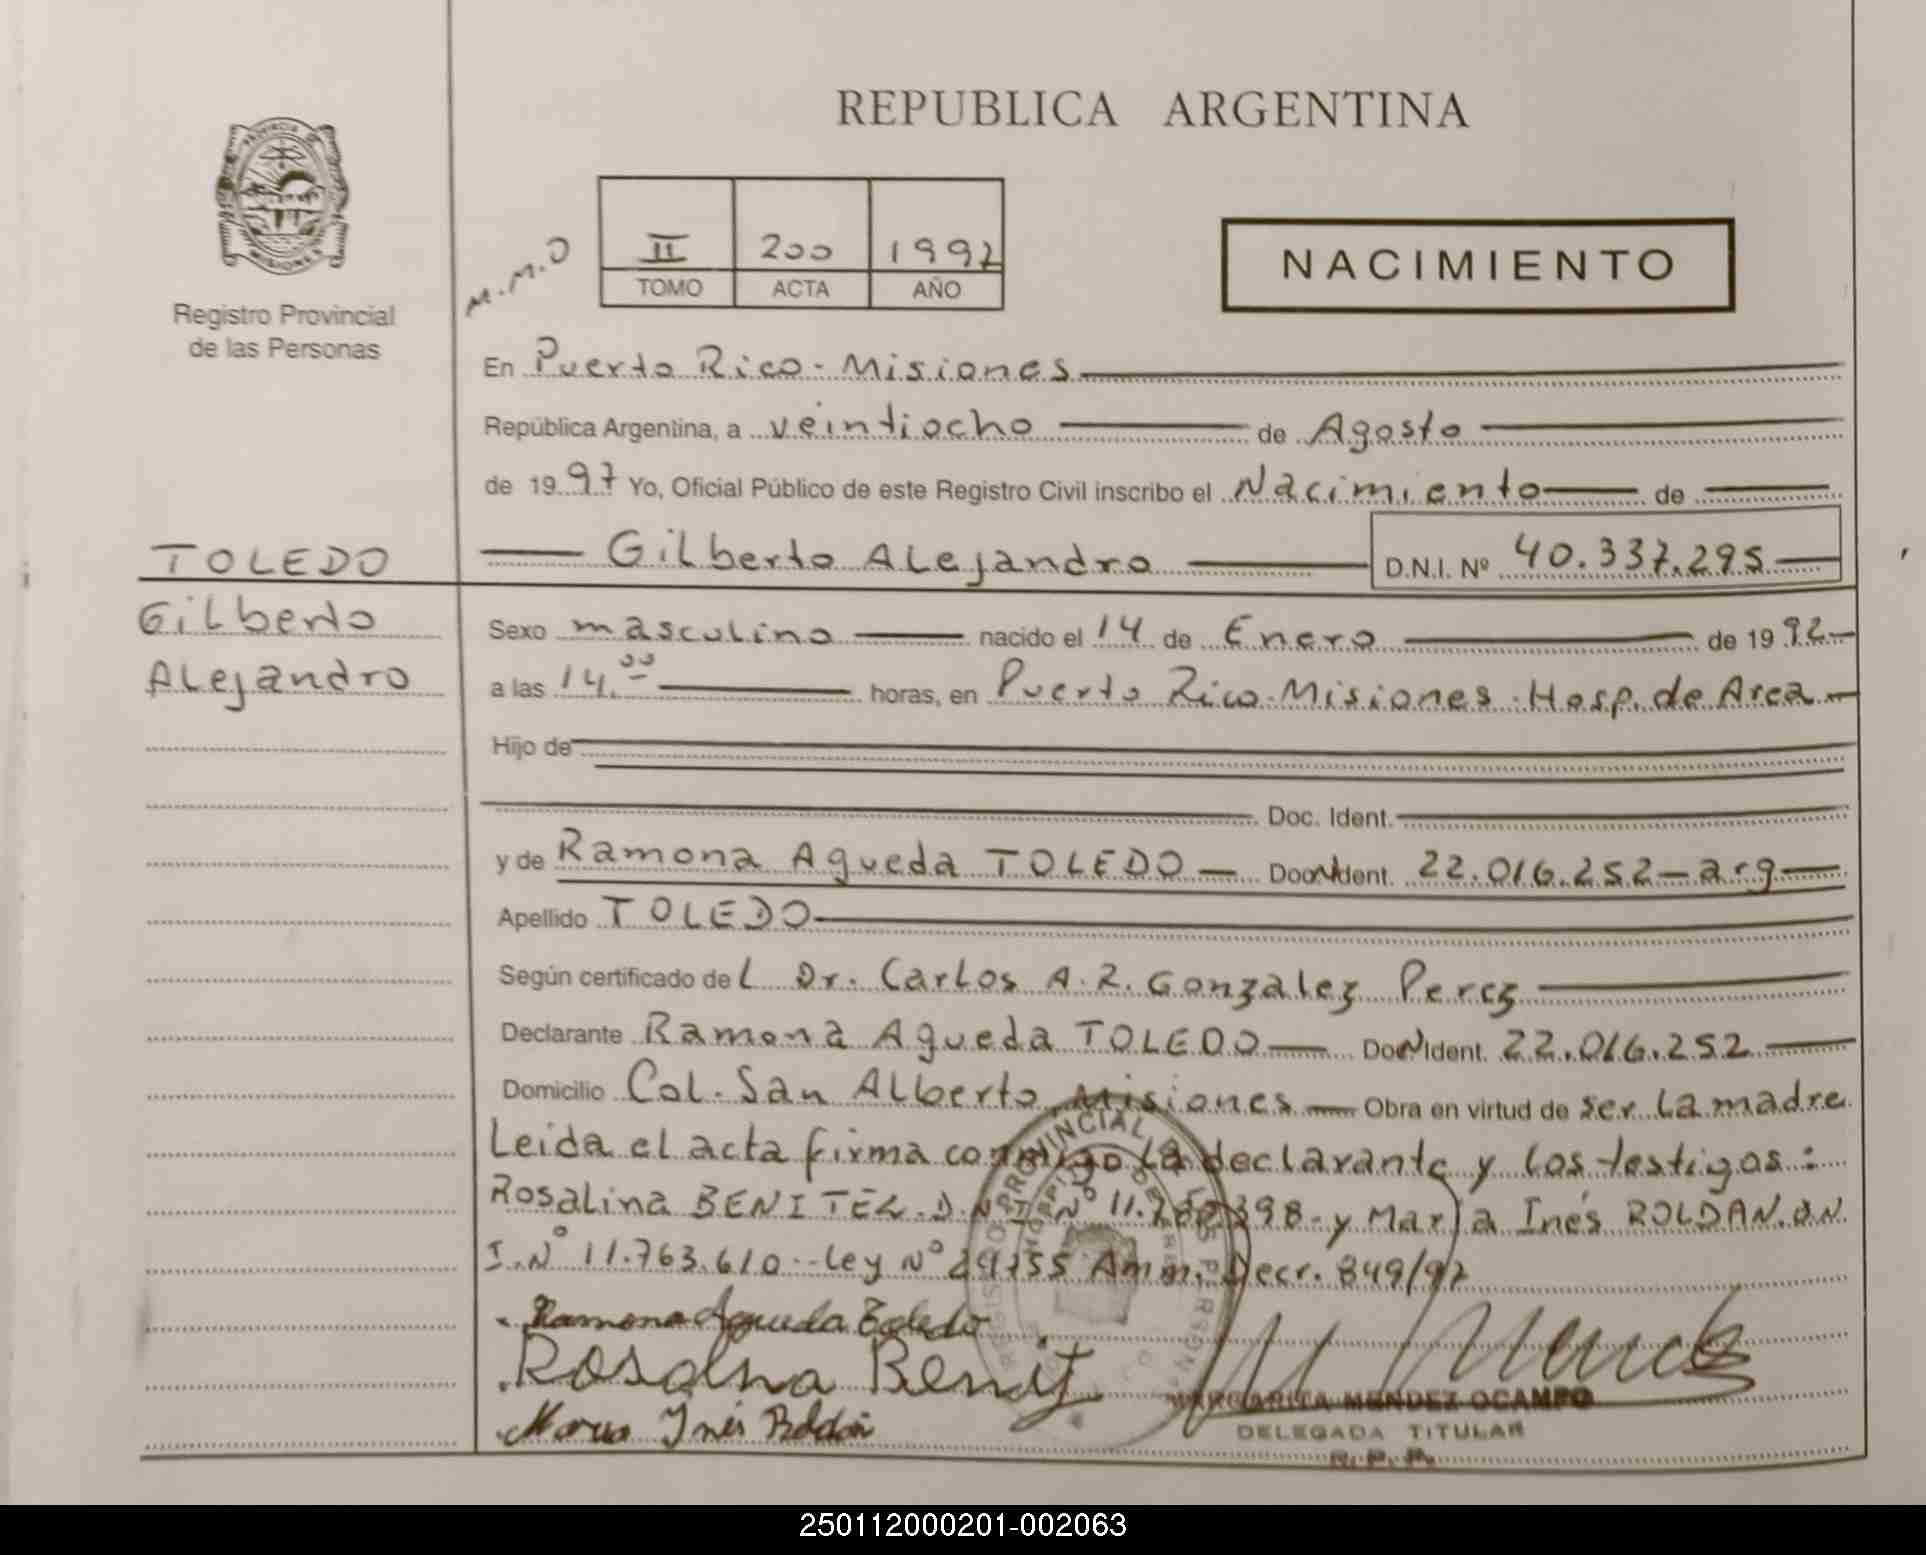 REPUBLICA ARGENTINA
PROVINCIA DE
MISIONES
Registro Provincial
de las Personas
M.M.O
II 200 1997
TOMO ACTA AÑO
NACIMIENTO
En Puerto Rico - Misiones
República Argentina, a veintiocho de Agosto
de 1997 Yo, Oficial Público de este Registro Civil inscribo el Nacimiento de
TOLEDO
Gilberto Alejandro D.N.I. Nº 40.337.295
Gilberto
Alejandro
Sexo masculino nacido el 14 de Enero de 1992
a las 14.00 horas, en Puerto Rico-Misiones-Hosp. de Area
Hijo de
Doc. Ident.
y de Ramona Agueda TOLEDO Ident. 22.016.252-arg
Apellido TOLEDO
Según certificado del Dr. Carlos A.R. Gonzalez Perez
Declarante Ramona Agueda TOLEDO Ident. 22.016.252
Domicilio Col. San Alberto, Misiones Obra en virtud de ser la madre
Leida el acta firma conmigo la declarante y los testigos:
Rosalina BENITEZ. D.N.I. Nº 398- y Maria Inés ROLDAN. D.N.
I.Nº 11.763.610 - Ley Nº Decr. 849/97
Ramona Agueda Toledo
Rosalina Benit
Maria Inés Roldán
MARGARITA MENDEZ OCAMPO
DELEGADA TITULAR
R.P.P.
250112000201-002063